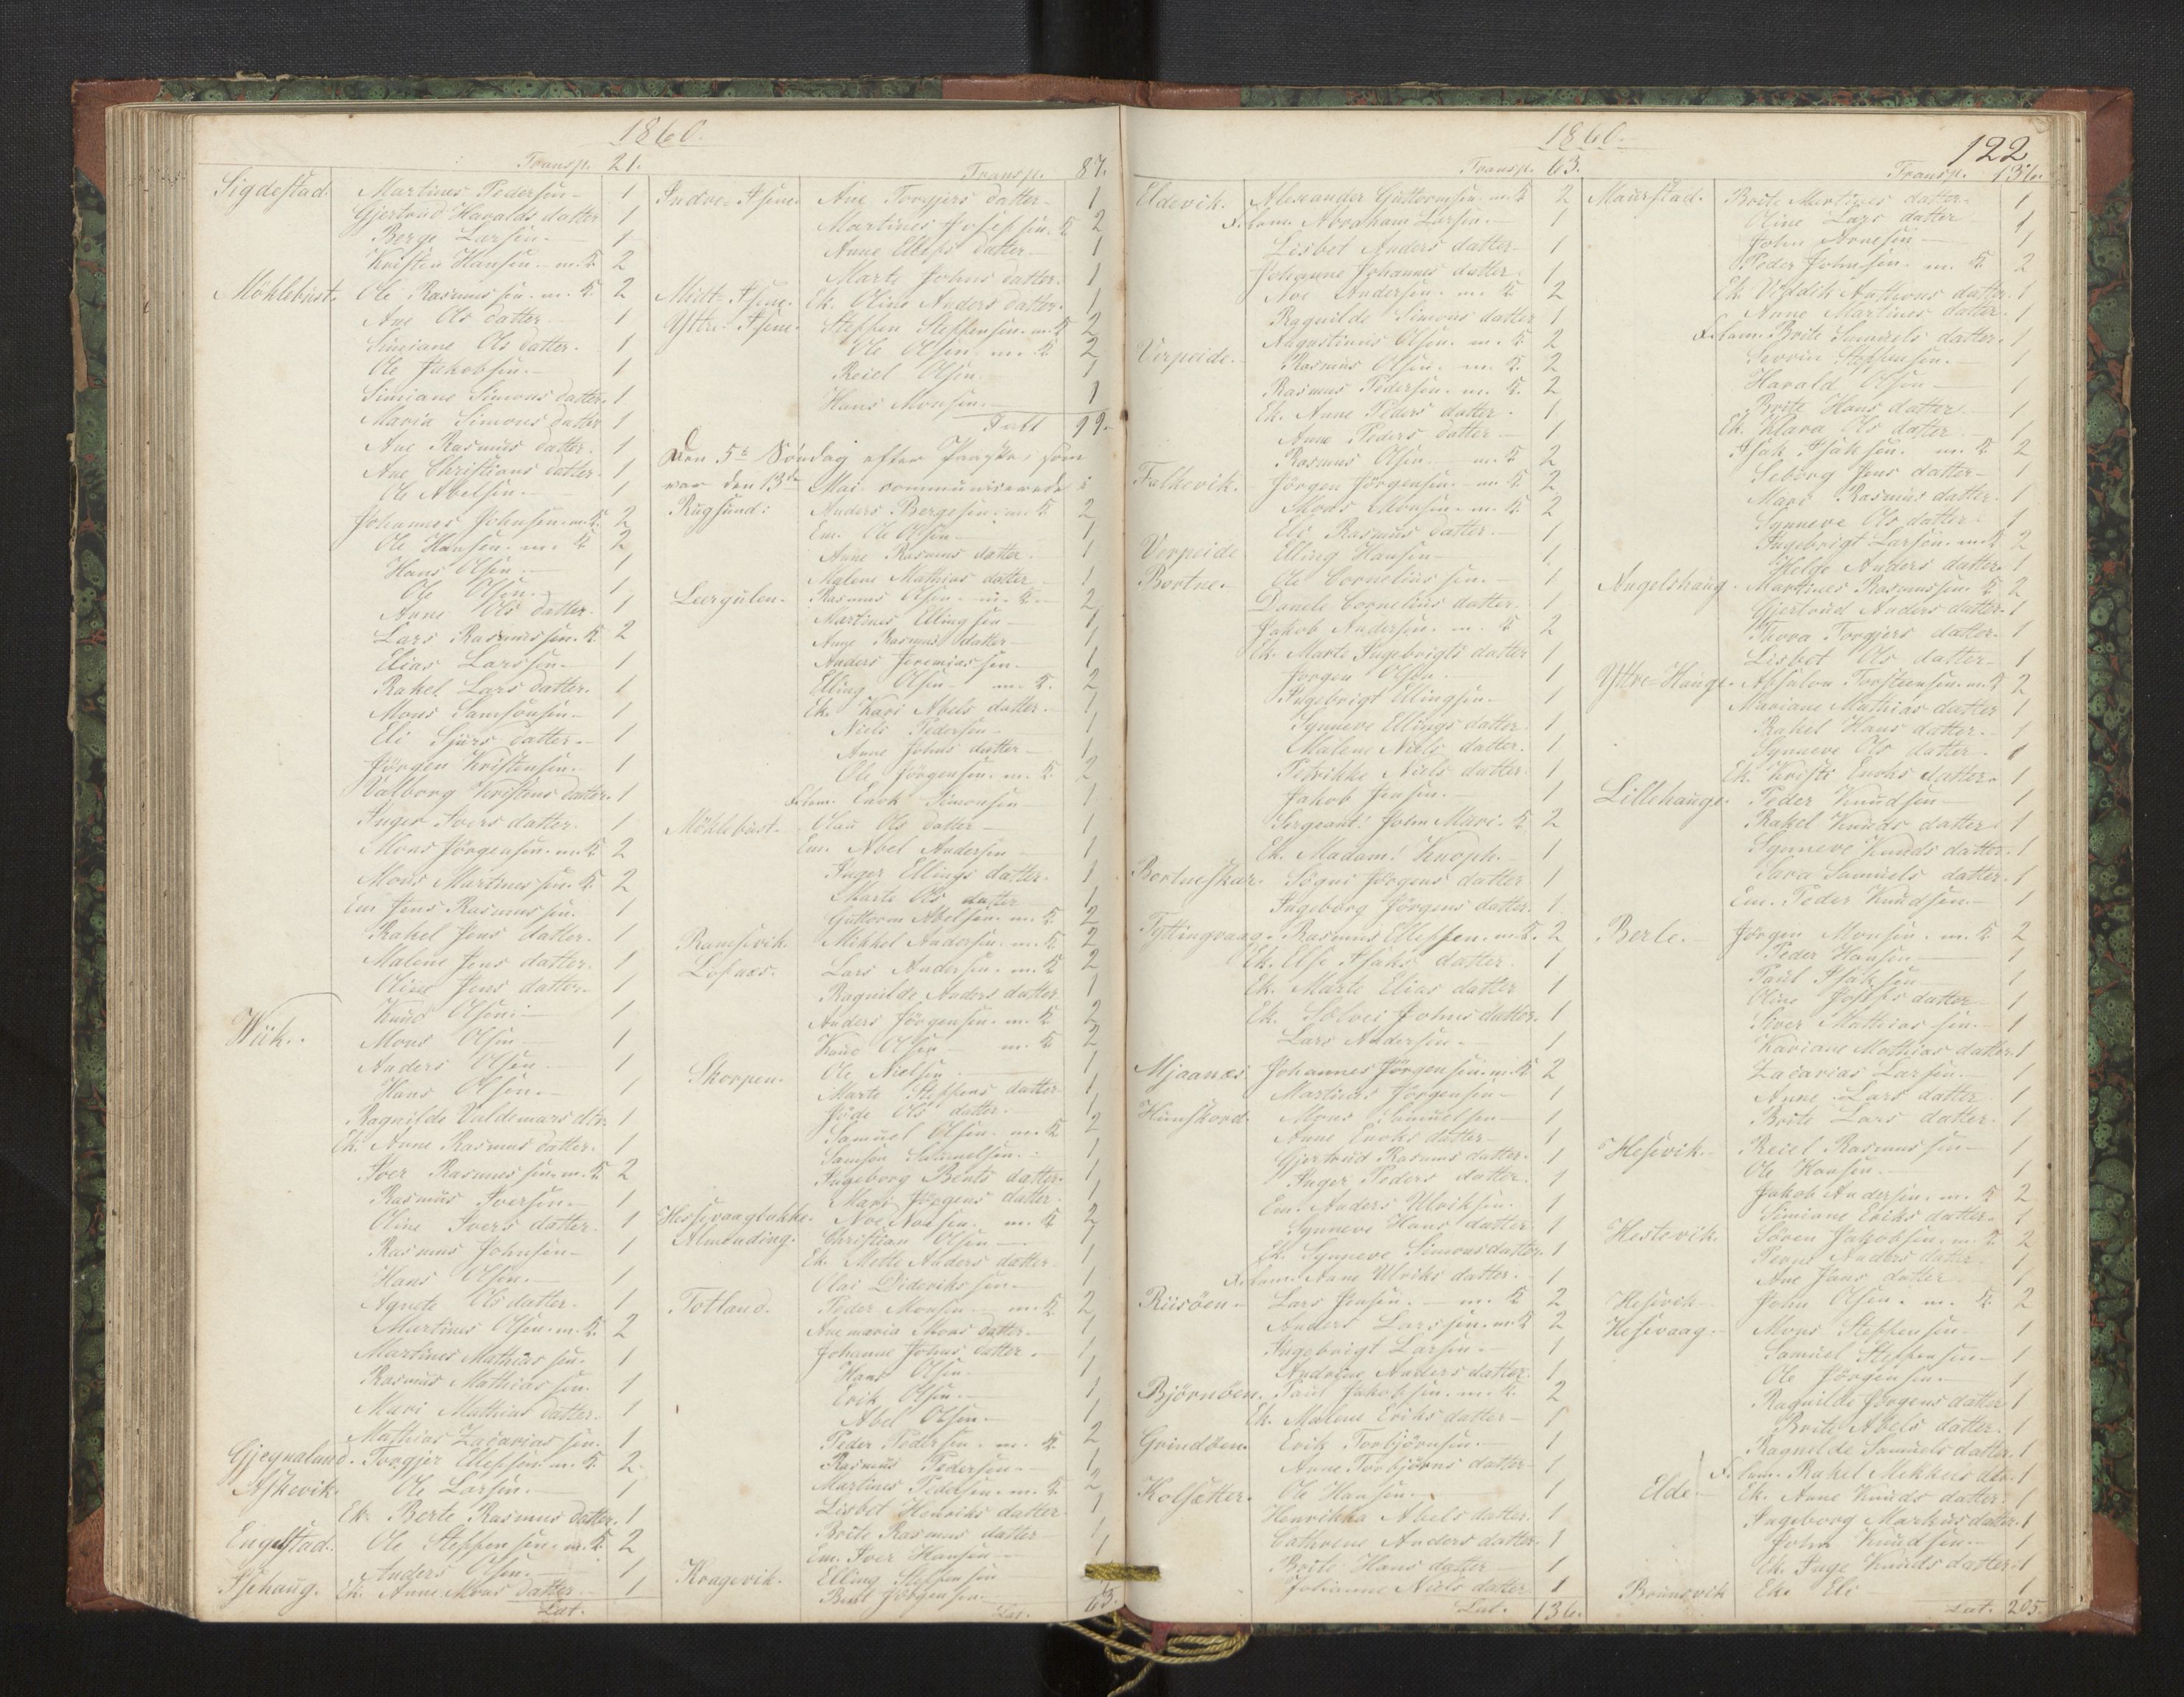 1860.
Transp. 21.
Sigdestad. Martines Pedersen 1
Gjertrud Haralds datter 1
Berge Larsen. 1
Kristen Hansen m. K. 2
Möhlebust. Ole Rasmussen. m. K. 2
Ane Ols datter 1
Simiane Ols datter. 1
Ole Jakobsen. 1
Simiane Simons datter. 1
Maria Simons datter 1
Ane Rasmus datter. 1
Ane Christians datter. 1
Ole Abelsen. 1
Johannes Johnsen. m. K. 2
Ole Hansen. m. K. 2
Hans Olsen 1
Ole Olsen. 1
Anne Ols datter. 1
Lars Rasmussen. K. 2
Elias Larssen. 1
Rakel Lars datter. 1
Mons Samsonsen. 1
Eli Sjurs datter. 1
Jörgen Kristensen. 1
Valborg Kristens datter. 1
Inger Ivers datter. 1
Mons Jörgensen. m. K. 2
Mons Martinessen. K. 2
Em Jens Rasmussen. 1
Rakel Jens datter. 1
Malene Jens datter. 1
Oline Jens datter. 1
Knud Olsen. 1
Wiik. Mons Olsen 1
Anders Olsen. 1
Hans Olsen. 1
Ragnilde Valdemars dtr. 1
Ek. Anne Rasmus datter. 1
Iver Rasmussen. m. K. 2
Rasmus Iversen. 1
Oline Ivers datter. 1
Rasmus Johnsen 1
Hans Olsen. 1
Agnete Ols datter. 1
Martines Olsen. m. K. 2
Martines Mathiassen. 1
Rasmus Mathiassen. 1
Mari Mathias datter. 1
Mathias Zacariassen. 1
Gjegnaland. Torgjer Ellefsen m. K. 2
Askevik. Ole Larsen. 1
Ek. Berte Rasmus datter. 1
Engestad. Ole Steffensen. m. K. 2
Anders Olsen. 1
Isehaug. Ek. Anne Mons datter. 1
Lat.
Transp. 87.
Indre-Isene. Ane Torgjers datter 1
Martines Josefsen. K. 2
Anne Ellefs datter 1
Marte Johns datter. 1
Midt-Isene. Ek. Oline Anders datter. 1
Yttre-Isene. Steffen Steffensen. m. K. 2
Ole Olsen m. K. 2
Reiel Olsen 1
Hans Monsen. 1
Tall 99.
Den 5te Söndag efter Paaske, som
var den 13de Mai communicerede:
Rugsund: Anders Bergesen. m. K. 2
Em. Ole Olsen 1
Anne Rasmus datter. 1
Malene Mathias datter 1
Leergulen. Rasmus Olsen. m. K. 2
Martines Ellingsen 1
Anne Rasmus datter 1
Anders Jeremiassen 1
Elling Olsen m. K. 2
Ek. Kari Abels datter. 1
Niels Pedersen 1
Anne Johns datter 1
Ole Jörgensen. m. K. 2
Enok Simonsen 1
Möhlebust. Olau Ols datter 1
Em. Abel Andersen 1
Inger Ellings datter. 1
Marte Ols datter 1
Guttorm Abelsen. m. K. 2
Ramsevik. Mikkel Andersen. m. K. 2
Löfnæs. Lars Andersen. m. K. 2
Ragnilde Anders datter 1
Anders Jörgensen. m. K. 2
Knud Olsen m. K. 2
Skorpen. Ole Nielsen 1
Marte Steffens datter 1
Jöde Ols datter. 1
Samuel Olsen. m. K. 2
Samson Samuelsen. 1
Ingeborg Bents datter. 1
Mari Jörgens datter. 1
Hessevaaglökke. m. K. 2
Almending. Christian Olsen 1
Ek. Mette Anders datter 1
Olai Dideriksen 1
Totland. Peder Monsen m. K. 2
Anemaria Mons datter. 1
Johanne Johns datter. 1
Hans Olsen 1
Erik Olsen. 1
Abel Olsen. 1
Peder Pedersen. m. K. 2
Rasmus Pedersen 1
Martines Pedersen. m. K. 2
Lisbet Henriks datter 1
Brite Rasmus datter 1
Em. Iver Hansen 1
Kragevik. Elling Steffensen
Bent Jörgensen.
Lat. 63.
1860.
122
Transp. 63.
Eldevik. Alexander Guttormsen m. K. 2
Abraham Larsen. 1
Lisbet Anders datter 1
Johanne Johannes datter 1
Andersen. m. K. 2
Ragnilde Simons datter 1
Augustinus Olsen. m. K. 2
Verpeide. Rasmus Olsen. m. K. 2
Rasmus Pedersen. m. K. 2
Ek. Anne Peders datter. 1
Anne Peders datter 1
Rasmus Olsen m. K. 2
Falkevik. Jörgen Jörgensen. m. K. 2
Mons Monsen. m. K. 2
Eli Rasmus datter. 1
Verpeide Elling Hansen 1
Bortne. Ole Corneliussen. 1
Danele Cornelius datter. 1
Jakob Andersen. m. K. 2
Ek. Marte Ingebrigts datter 1
Jörgen Olsen. 1
Ingebrigt Ellingsen. 1
Synneve Ellings datter. 1
Malene Niels datter. 1
Petrikke Niels datter. 1
Jakob Jensen. 1
Sergeant! John Mari. K. 2
Ek. Madam! Knoph. 1
Bortneskar. Sögni Jörgens datter 1
Ingeborg Jörgens datter. 1
Tyttingvaag. Rasmus Ellefsen. m. K. 2
Ek. Else Isaks datter. 1
Ek. Marte Elias datter 1
Ek. Solvei Johns datter. 1
Lars Andersen. 1
Mjaanæs. Johannes Jörgensen. m. K. 2
Martines Jörgensen 1
Hunskord. Mons Samuelsen 1
Anne Enoks datter 1
Gjertrud Rasmus datter. 1
Inger Peders datter. 1
Em. Anders Ulriksen. 1
Synneve Hans datter. 1
Ek. Synneve Simonsdatter. 1
Anne Ulriks datter. 1
Riisöen. Lars Jensen. m. K. 2
Anders Larssen. m. K. 2
Ingebrigt Larsen. 1
Andrine Anders datter. 1
Björnöen. Paul Jakobsen. m. K. 2
Ek. Malene Eriks datter 1
Grindöen. Erik Torbjörnsen. 1
Anne Torbjörns datter 1
Kolsætter. Ole Hansen. 1
Henrikka Abels datter. 1
Cathrene Anders datter. 1
Brite Hans datter 1
Johanne Niels datter 1
Lat. 136.
Transp. 136.
Maurstad. Brite Martines datter. 1
Oline Lars datter 1
John Arnesen 1
Peder Johnsen. m. K. 2
Ek. Anthons datter. 1
Anne Martines datter. 1
Brite Samuels datter. 1
Severin Steffensen. 1
Harald Olsen 1
Brite Hans datter 1
Ek. Klara Ols datter 1
Isak Isaksen. m. K. 2
Seborg Jens datter 1
Mari Rasmus datter. 1
Synneve Ols datter. 1
Ingebrigt Larsen. m. K. 2
Helge Anders datter. 1
Angelshaug. Martines Rasmussen. K. 2
Gjertrud Anders datter. 1
Thora Torgjers datter. 1
Lisbet Ols datter 1
Yttre-Hauge. Absalon Torsteensen. m. K. 2
Mariane Mathias datter 1
Rakel Hans datter. 1
Synneve Ols datter. 1
Ek. Kristi Enoks datter. 1
Lillehauge. Peder Knudsen 1
Rakel Knuds datter 1
Synneve Knuds datter. 1
Sara Samuels datter. 1
Em. Peder Knudsen. 1
Berle. Jörgen Monsen. m. K. 2
Peder Hansen 1
Paul Isaksen 1
Oline Josefs datter 1
Siver Mathiassen. 1
Kariane Mathias datter. 1
Zacarias Larsen. 1
Anne Lars datter 1
Brite Lars datter. 1
Hesevik. Reiel Rasmussen 1
Ole Hansen. 1
Jakob Andersen. m. K. 2
Simiane Eriks datter. 1
Hestevik. Sören Jakobsen. m. K. 2
Anders datter 1
Ane Jans datter 1
Hesevik John Olsen. m. K. 2
Hesevaag. Mons Steffensen 1
Samuel Steffensen 1
Ole Jörgensen. 1
Ragnilde Jörgens datter 1
Brite Abels datter. 1
Ragnilde Samuels datter. 1
Rakel Mekkels dtr. 1
Elde Ek. Anne Knuds datter. 1
Ingeborg Markus datter. 1
John Knudsen 1
Ek. Inge Knuds datter. 1
Brunsvik Ek. Eli 1
Lat. 205.